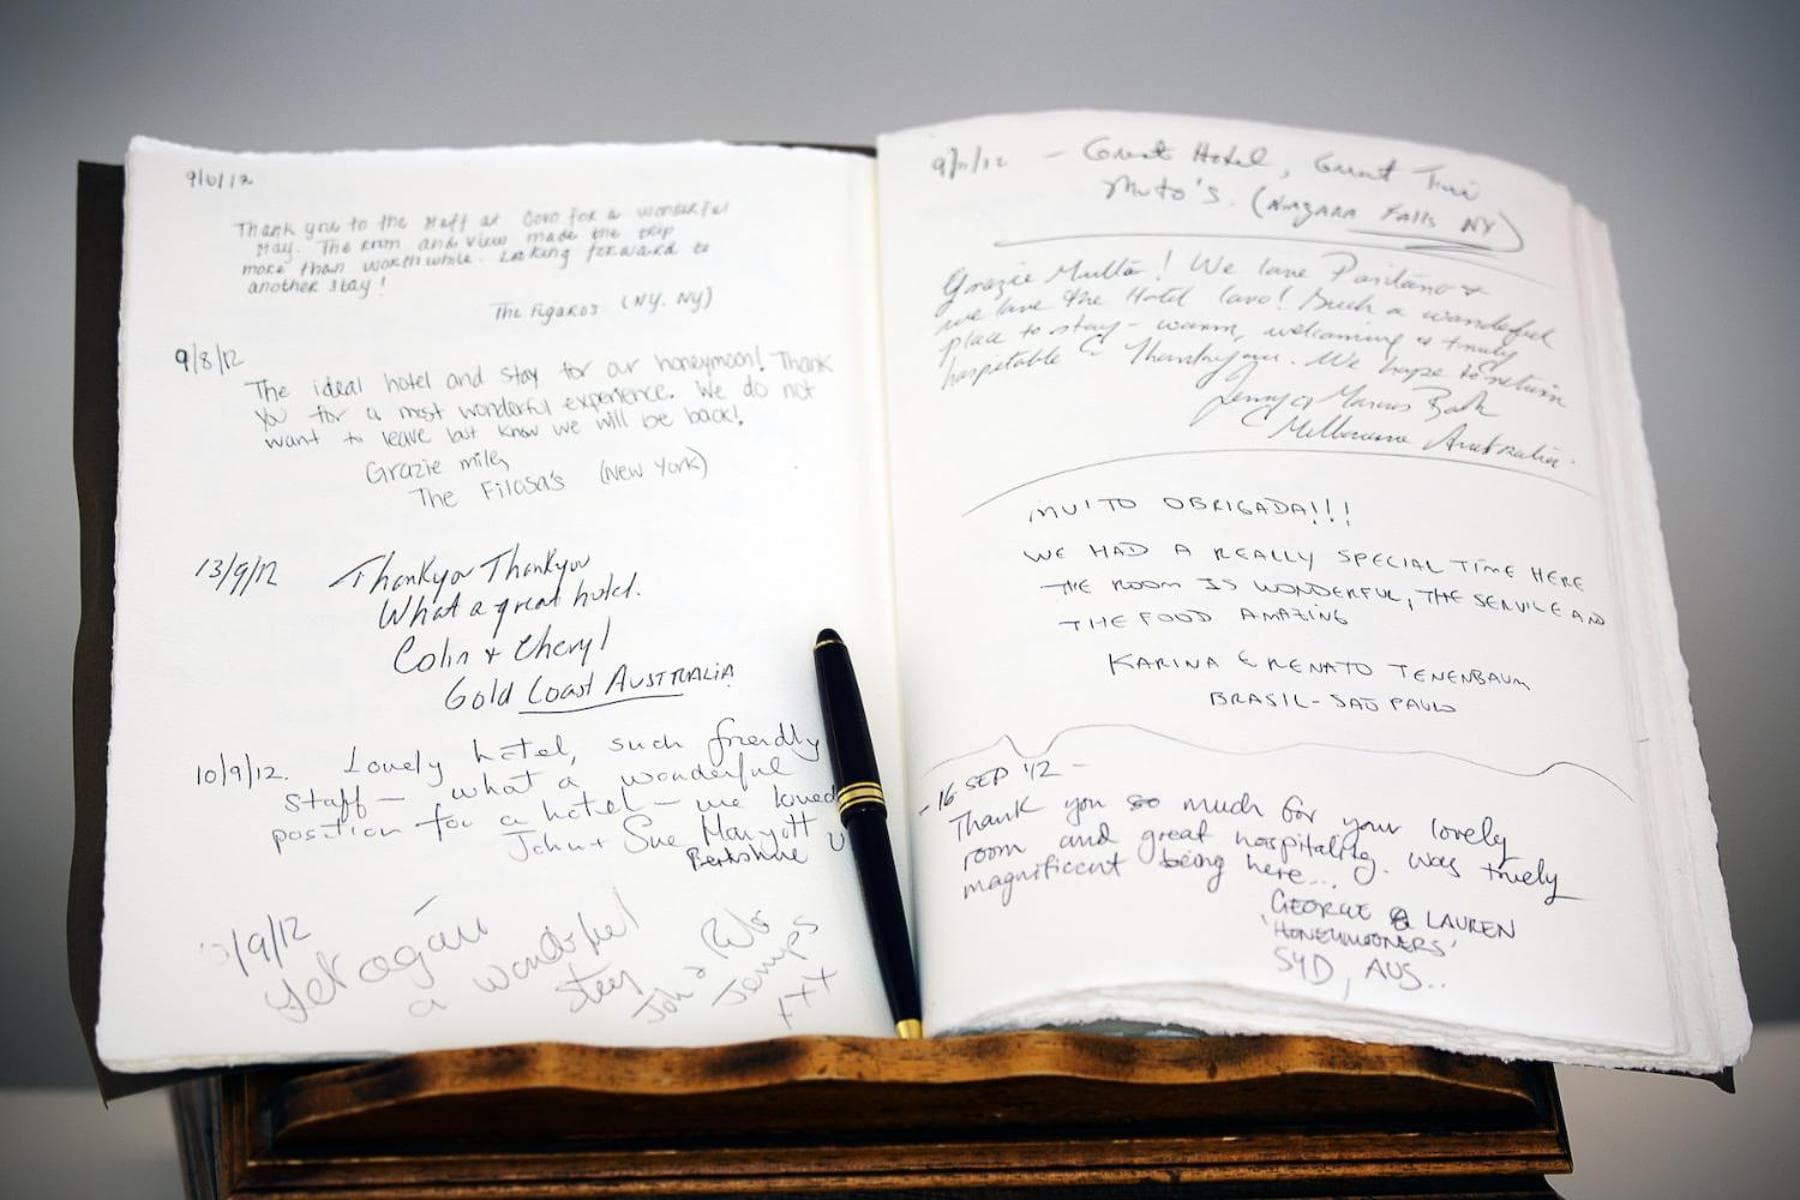 9/6/12
Thank you to the staff at Covo for a wonderful
stay. The room and view made the trip
more than worthwhile. Looking forward to
another stay!
The Figaros (NY, NY)
9/8/12
The ideal hotel and stay for our honeymoon! Thank
you for a most wonderful experience. We do not
want to leave but know we will be back!
Grazie miles
The Filosa's (New York)
13/9/12 Thankyou Thankyou
What a great hotel.
Colin + Cheryl
Gold Coast AUSTRALIA
10/9/12. Lovely hotel, such friendly
staff - what a wonderful
position for a hotel - we loved
John + Sue Maryott U
Berkshire
/9/12
Yet again
a wonderful
stay
Jon &
xxx
- Great Hotel, Great Time
Muto's. (NIAGARA Falls NY)
Grazie Multa! We love Positano &
we love the Hotel Covo! Such a wonderful
place to stay - warm, welcoming & truly
hospitable Thankyou. We hope to return
Jenny & Marcus
Melbourne Australia.
MUITO OBRIGADA!!!
WE HAD A REALLY SPECIAL TIME HERE
THE ROOM IS WONDERFUL, THE SERVICE AND
THE FOOD AMAZING
KARINA E RENATO TENENBAUM
BRASIL - SAO PAULO
- 16 SEP '12 -
Thank you so much for your lovely
room and great hospitality. Was truely
magnificent being here...
GEORGE & LAUREN
'HONEYMOONERS'
SYD, AUS..